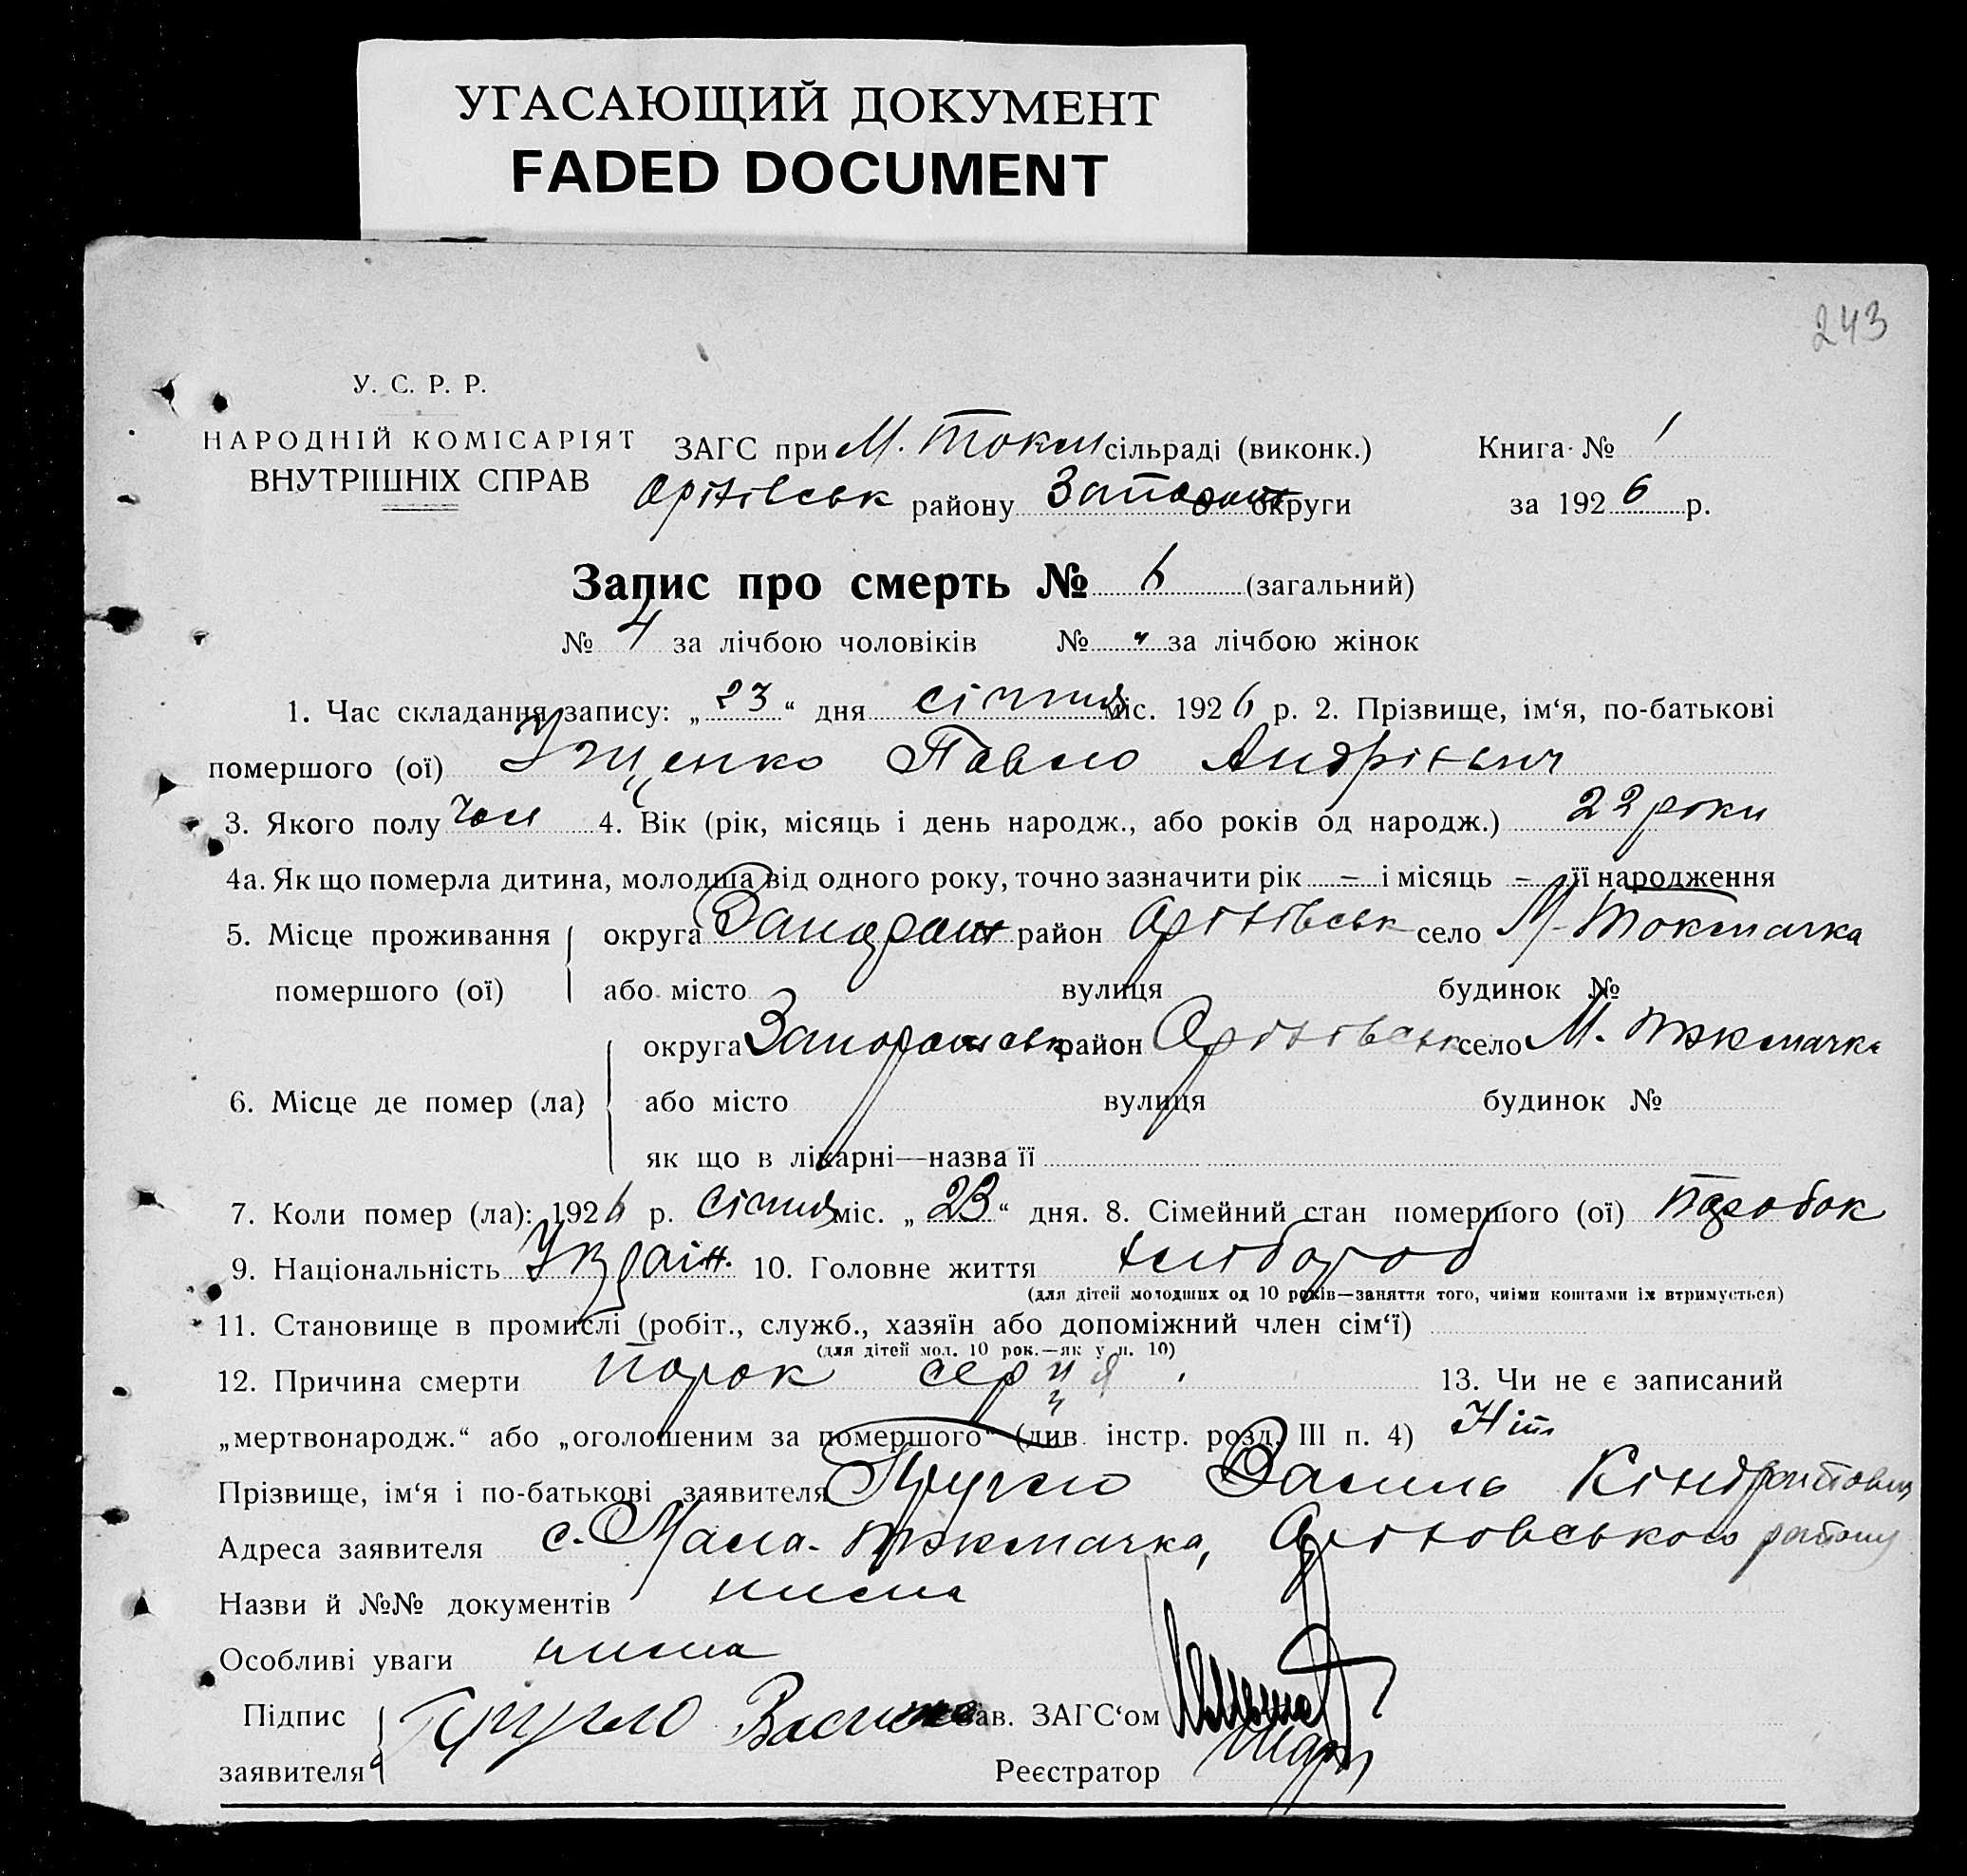 УГАСАЮЩИЙ ДОКУМЕНТ
FADED DOCUMENT
243
У. С. Р. Р.
НАРОДНІЙ КОМІСАРІЯТ
ВНУТРІШНІХ СПРАВ
ЗАГС при М. Токм сільраді (виконк.) Книга № 1
Оріхівськ району Запоріж округи за 1926 р.
Запис про смерть № 6 (загальний)
№ 4 за лічбою чоловіків № " за лічбою жінок
1. Час складання запису: „23“ дня січня міс. 1926 р. 2. Прізвище, ім‘я, по-батькові
помершого (ої) Ущенко Павло Андрієвич
3. Якого полу чол 4. Вік (рік, місяць і день народж., або років од народж.) 22 роки
4а. Як що померла дитина, молодша від одного року, точно зазначити рік – і місяць – її народження
5. Місце проживання округа Запорож район Оріхівськ село М-Токмачка
помершого (ої) або місто вулиця будинок №
округа Запорожськ район Оріхівськ село М. Токмачка
6. Місце де помер (ла) або місто вулиця будинок №
як що в лікарні—назва її
7. Коли помер (ла): 1926 р. Січня міс. „23“ дня. 8. Сімейний стан помершого (ої) Паробок
9. Національність Україн. 10. Головне життя хлібороб
(для дітей молодших од 10 років—заняття того, чиїми коштами їх втримується)
11. Становище в промислі (робіт., служб., хазяїн або допоміжний член сім‘ї)
(для дітей мол. 10 рок.—як у п. 10)
12. Причина смерти порок серця 13. Чи не є записаний
„мертвонародж.“ або „оголошеним за помершого“ (див. інстр. розд. III п. 4) Ніт
Прізвище, ім‘я і по-батькові заявителя Василь Кіндратович
Адреса заявителя с. Мала-Токмачка, Оріховського району
Назви й №№ документів нима
Особливі уваги нима
Підпис Василь Зав. ЗАГС‘ом
заявителя Реєстратор